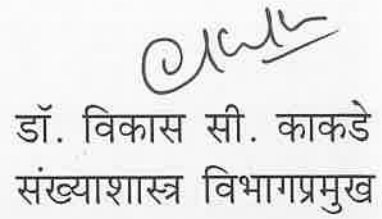 डॉ. विकास सी. काकडे
संख्याशास्त्र विभागप्रमुख